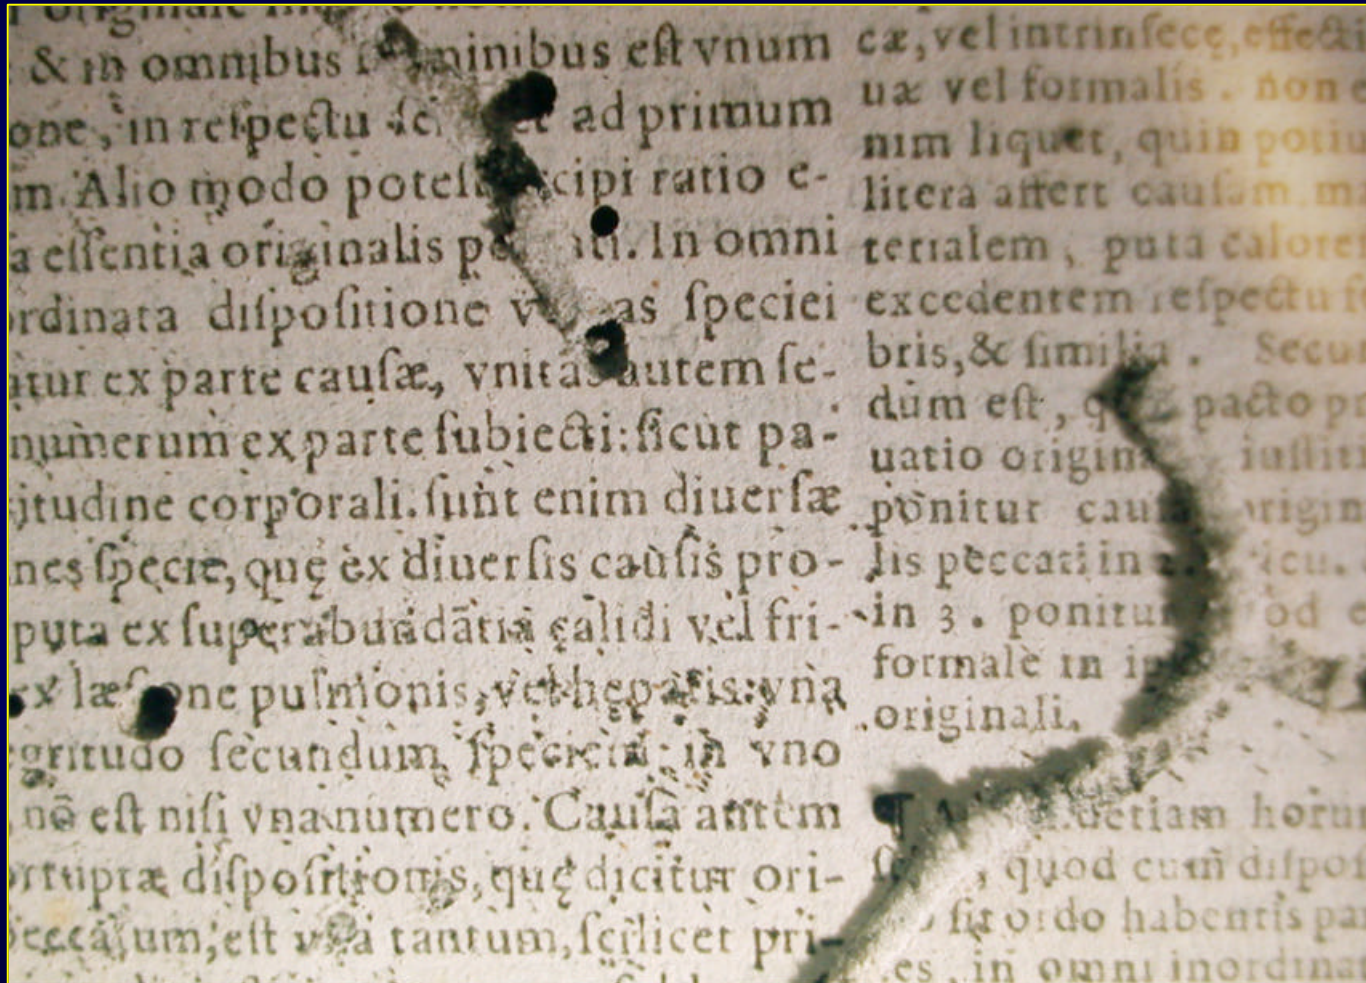 & in omnibus minibus eſt vnum
one, in reſpectu ad primum
m. Alio modo poteſt cipi ratio e-
a eſſentia originalis pe ati. In omni
rdinata diſpoſitione v as ſpeciei
atur ex parte cauſæ, vnitas autem ſe-
numerum ex parte ſubiecti: ſicut pa-
itudine corporali. ſunt enim diuerſæ
nes ſpecie, quę ex diuerſis cauſis pro-
puta ex ſuperabundātia calidi vel fri-
x læſ one pulmonis, vel hepatis: vna
gritudo ſecundum ſpeciem in vno
nō eſt niſi vna numero. Cauſa autem
rruptæ diſpoſitionis, quę dicitur ori-
peccatum, eſt vna tantum, ſcilicet pri-
cæ, vel intrinſecę, effecti
uæ vel formalis. non e
nim liquet, quin potiu
litera affert cauſam ma
terialem, puta calore
excedentem reſpectu f
bris, & ſimilia. Secu
dum eſt, pacto pr
uatio origin iuſtit
ponitur cauſa origin
lis peccati in icu.
in 3. ponitu od e
formale in i
originali.
etiam horu
, quod cum diſpoſ
ſit ordo habentis pa
es, in omni inordina